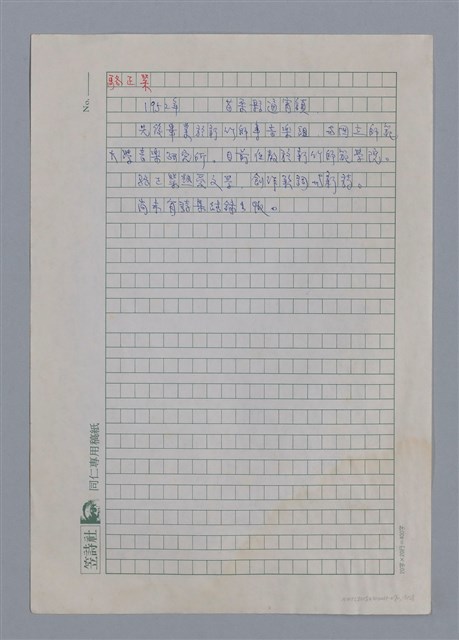 駱正榮
1952年 苗栗縣通霄鎮
先後畢業於新竹師專音樂組 國立師範
大學音樂研究所。目前任教於新竹師範學院。
駱正榮熱愛文學，創作歌詞與新詩。
尚未有詩集結錄出版。
No.
笠詩社
同仁專用稿紙